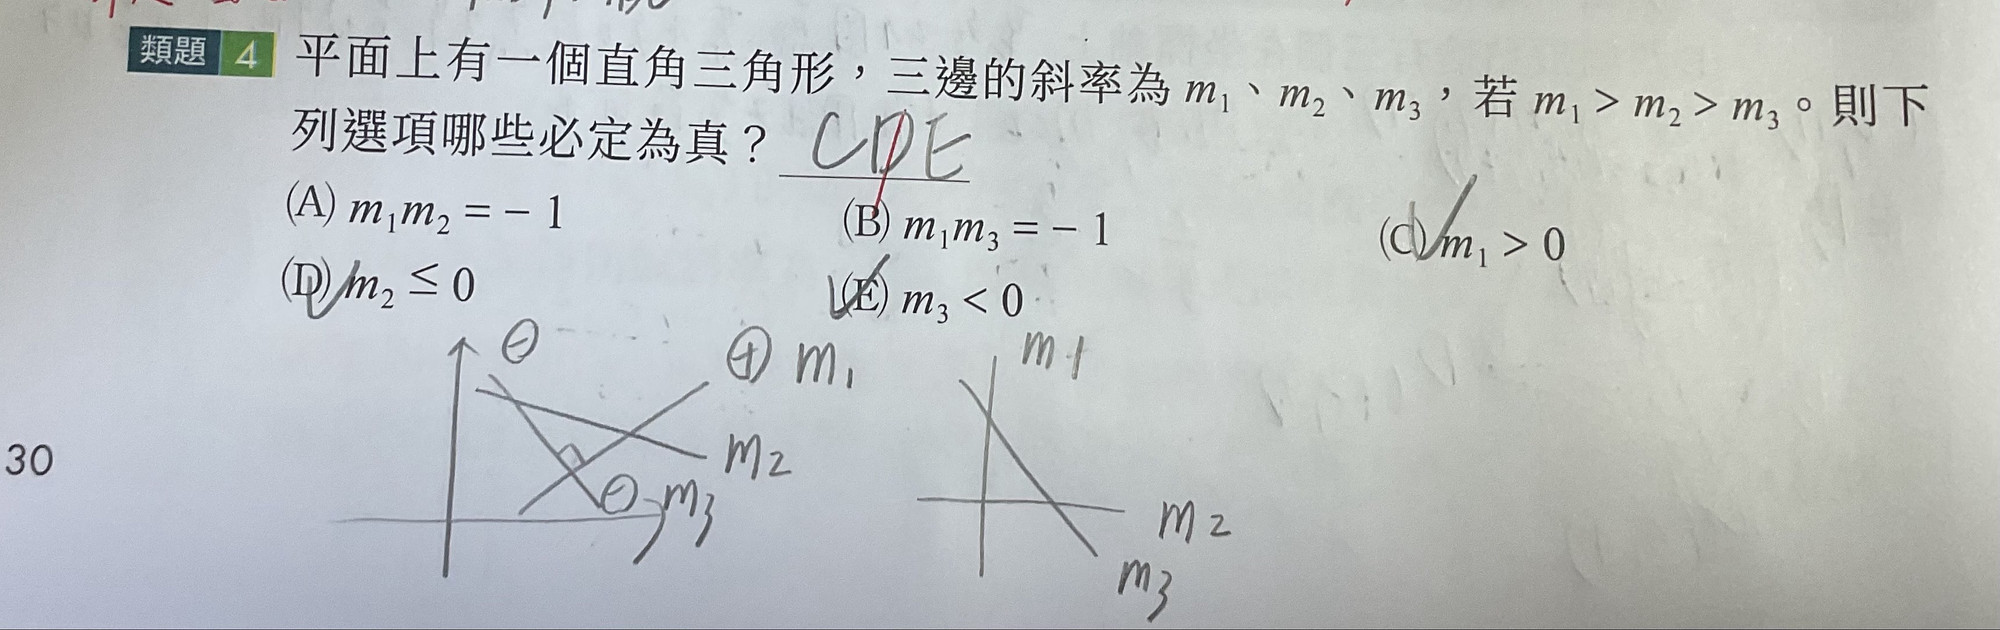 類題 4 平面上有一個直角三角形，三邊的斜率為 m₁、m₂、m₃，若 m₁ > m₂ > m₃。則下
列選項哪些必定為真？ CDE
(A) m₁m₂ = − 1 (B) m₁m₃ = − 1 (C) m₁ > 0
(D) m₂ ≤ 0 (E) m₃ < 0
⊖ ⊕ m₁ m1
m₂
⊖ m₃ m₂
m₃
30